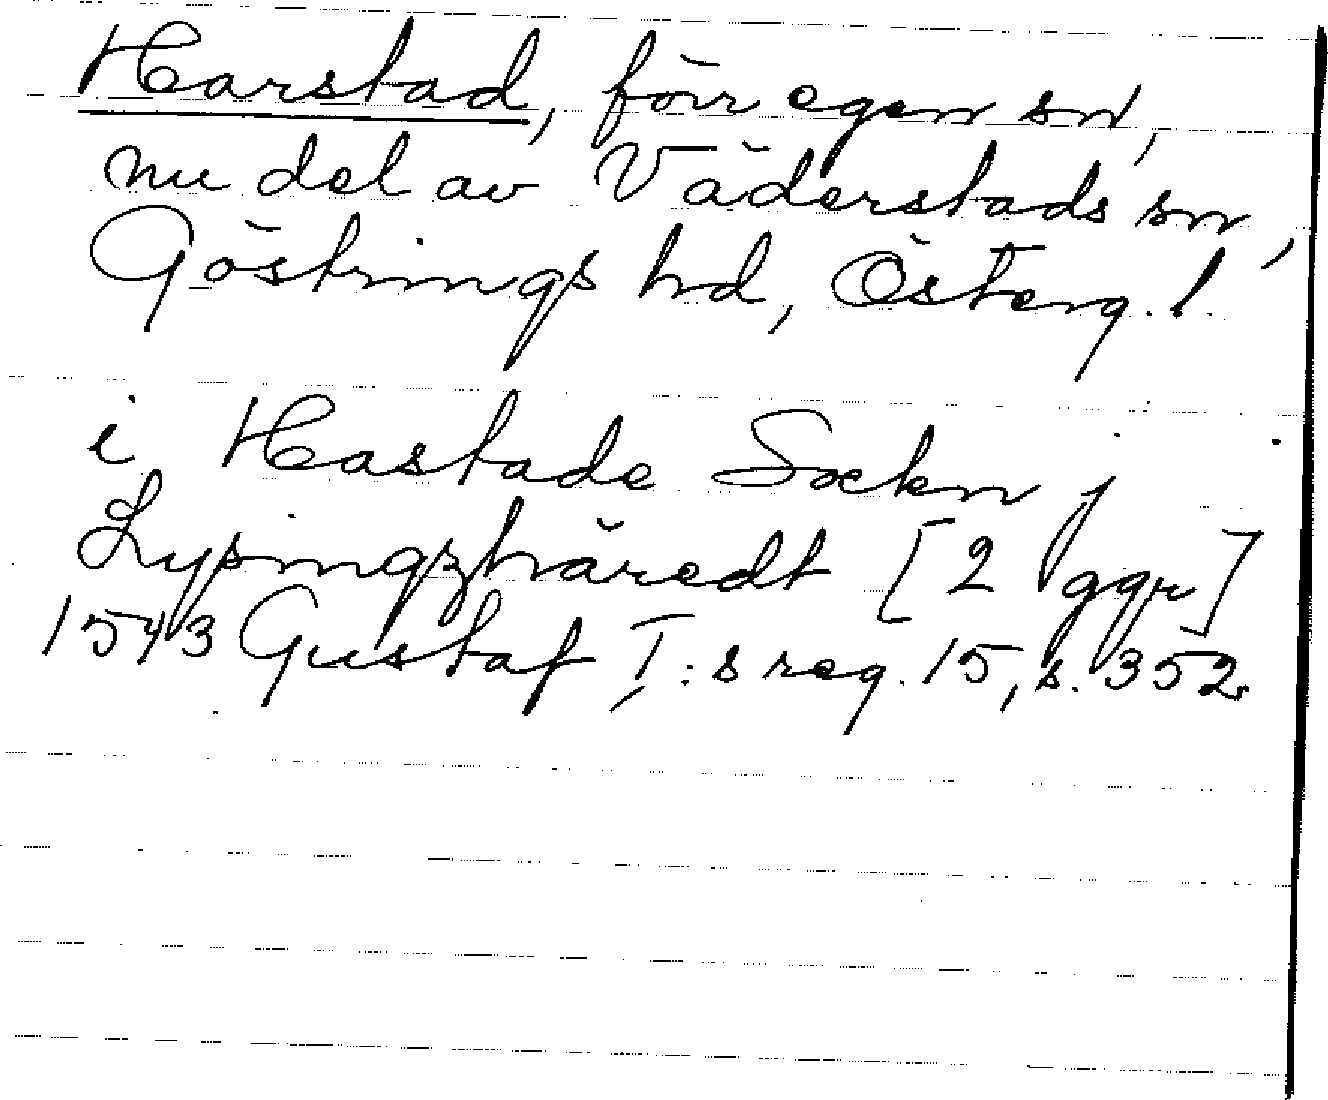 Harstad, förr egen sn,
nu del av Väderstads sn,
Göstrings hd, Österg. l.
i Hastade Sockn j
Lysingzhäredt [2 ggr]
1543 Gustaf I:s reg. 15, s. 352.